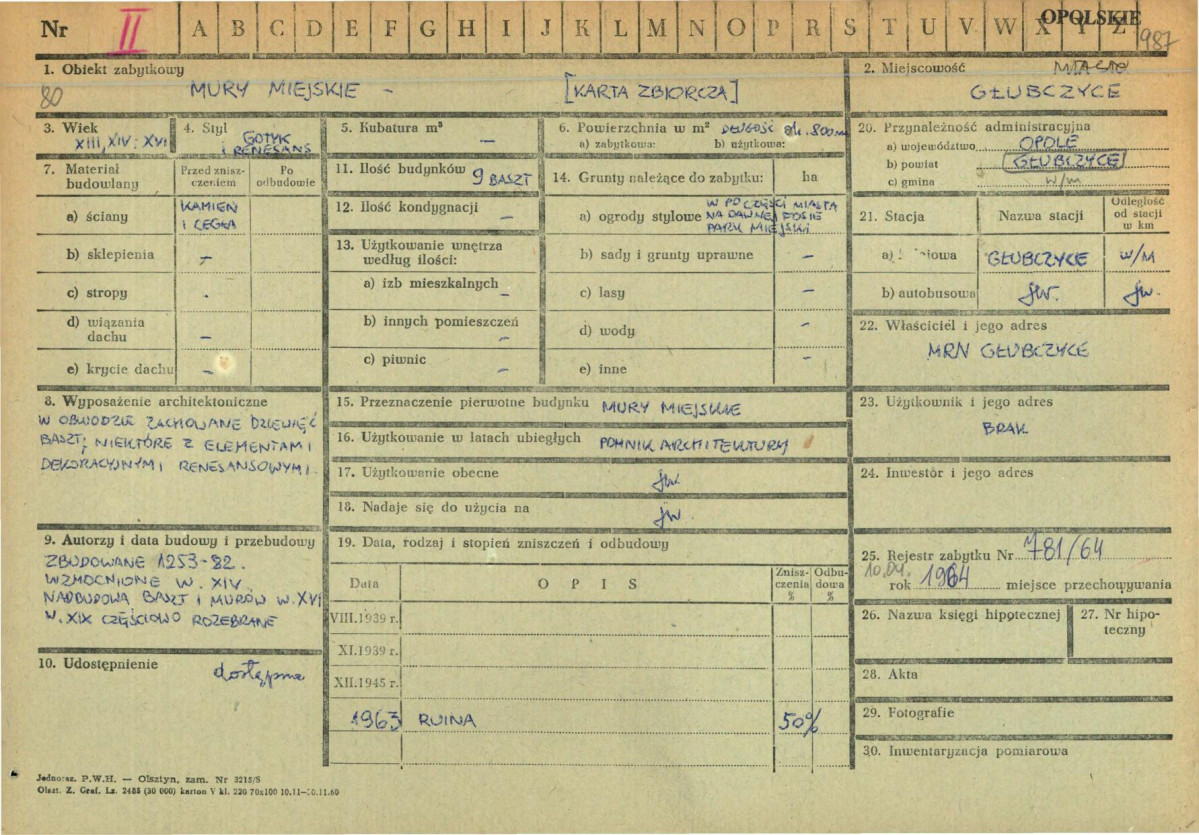 Nr II A B C D E F G H I J K L M N O P R S T U V W X Y Z OPOLSKIE
987
1. Obiekt zabytkowy
80 MURY MIEJSKIE - [KARTA ZBIORCZA]
2. Miejscowość MIASTO
GŁUBCZYCE
3. Wiek
XIII, XIV: XVI
4. Styl
GOTYK
I RENESANS
5. Kubatura m³
6. Powierzchnia w m² DŁUGOŚĆ ok. 800m
a) zabytkowa: b) użytkowa:
7. Materiał
budowlany
Przed znisz-
czeniem
Po
odbudowie
a) ściany KAMIEŃ
I CEGŁA
b) sklepienia -
c) stropy .
d) wiązania
dachu -
e) krycie dachu -
8. Wyposażenie architektoniczne
W OBWODZIE ZACHOWANE DZIEWIĘĆ
BASZT, NIEKTÓRE Z ELEMENTAMI
DEKORACYJNYMI RENESANSOWYMI.
9. Autorzy i data budowy i przebudowy
ZBUDOWANE 1253-82.
WZMOCNIONE W. XIV.
NADBUDOWA BASZT I MURÓW W. XVI
W. XIX CZĘŚCIOWO ROZEBRANE
10. Udostępnienie
dostępne
11. Ilość budynków 9 BASZT
12. Ilość kondygnacji -
13. Użytkowanie wnętrza
według ilości:
a) izb mieszkalnych -
b) innych pomieszczeń -
c) piwnic -
14. Grunty należące do zabytku: ha
a) ogrody stylowe W PD CZĘŚCI MIASTA
NA DAWNEJ FOSIE
PARK MIEJSKI
b) sady i grunty uprawne -
c) lasy -
d) wody -
e) inne -
15. Przeznaczenie pierwotne budynku MURY MIEJSKIE
16. Użytkowanie w latach ubiegłych POMNIK ARCHITEKTURY
17. Użytkowanie obecne jw.
18. Nadaje się do użycia na jw.
19. Data, rodzaj i stopień zniszczeń i odbudowy
Data O P I S Znisz-
czenia
% Odbu-
dowa
%
VIII.1939 r.
XI.1939 r.
XII.1945 r.
1963 RUINA 50%
20. Przynależność administracyjna
a) województwo OPOLE
b) powiat GŁUBCZYCE
c) gmina w/m
21. Stacja Nazwa stacji Odległość
od stacji
w km
a) GŁUBCZYCE W/M
b) autobusowa jw. jw.
22. Właściciel i jego adres
MRN GŁUBCZYCE
23. Użytkownik i jego adres
BRAK
24. Inwestor i jego adres
25. Rejestr zabytku Nr 781/64
10.04.
rok 1964 miejsce przechowywania
26. Nazwa księgi hipotecznej
27. Nr hipo-
teczny
28. Akta
29. Fotografie
30. Inwentaryzacja pomiarowa
Jednoraz. P.W.H. — Olsztyn, zam. Nr 3215/S
Olszt. Z. Graf. Lz. 2485 (30 000) karton V kl. 220 70x100 10.11-30.11.60